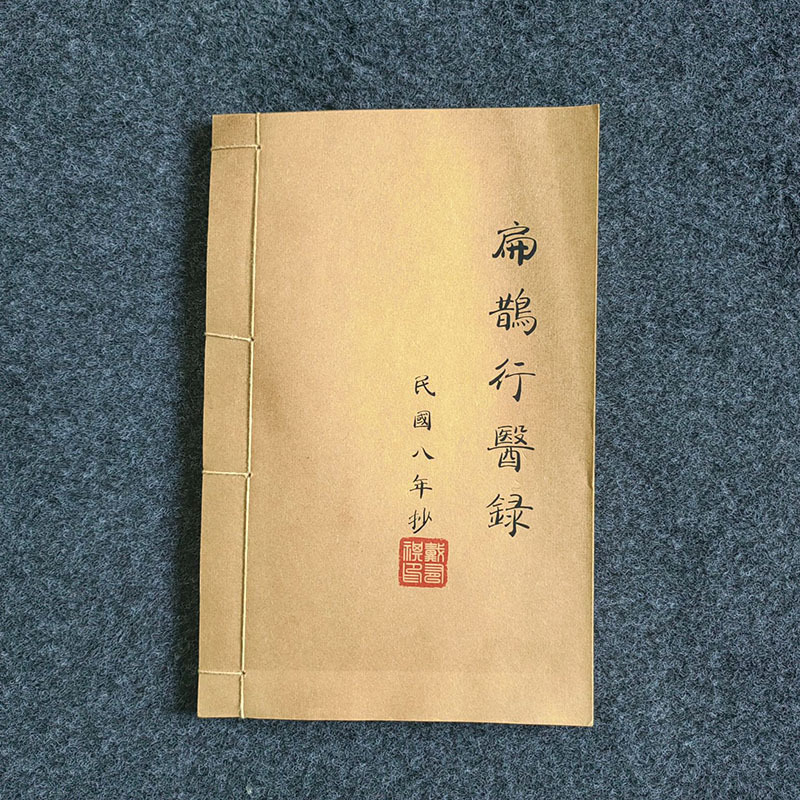 扁鵲行醫錄
民國八年抄